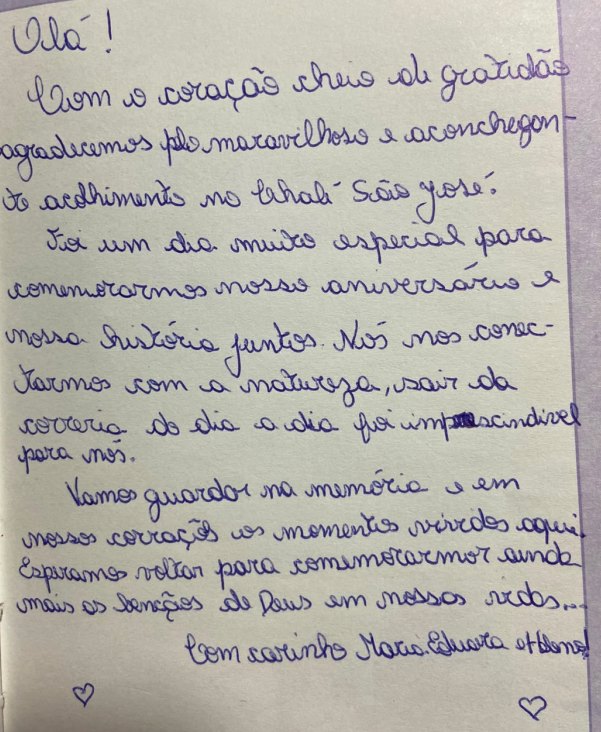 Olá!
Com o coração cheio de gratidão
agradecemos pelo maravilhoso e aconchegan-
te acolhimento no Chalé São José.
Foi um dia muito especial para
comemorarmos nosso aniversário e
nossa história juntos. Nós nos conec-
tarmos com a natureza, sair da
correria do dia a dia foi imprescindível
para nós.
Vamos guardar na memória e em
nossos corrações os momentos vividos aqui!
Esperamos voltar para comemorarmor ainda
mais as bençãos de Deus em nossas vidas...
Com carinho Maria Eduara